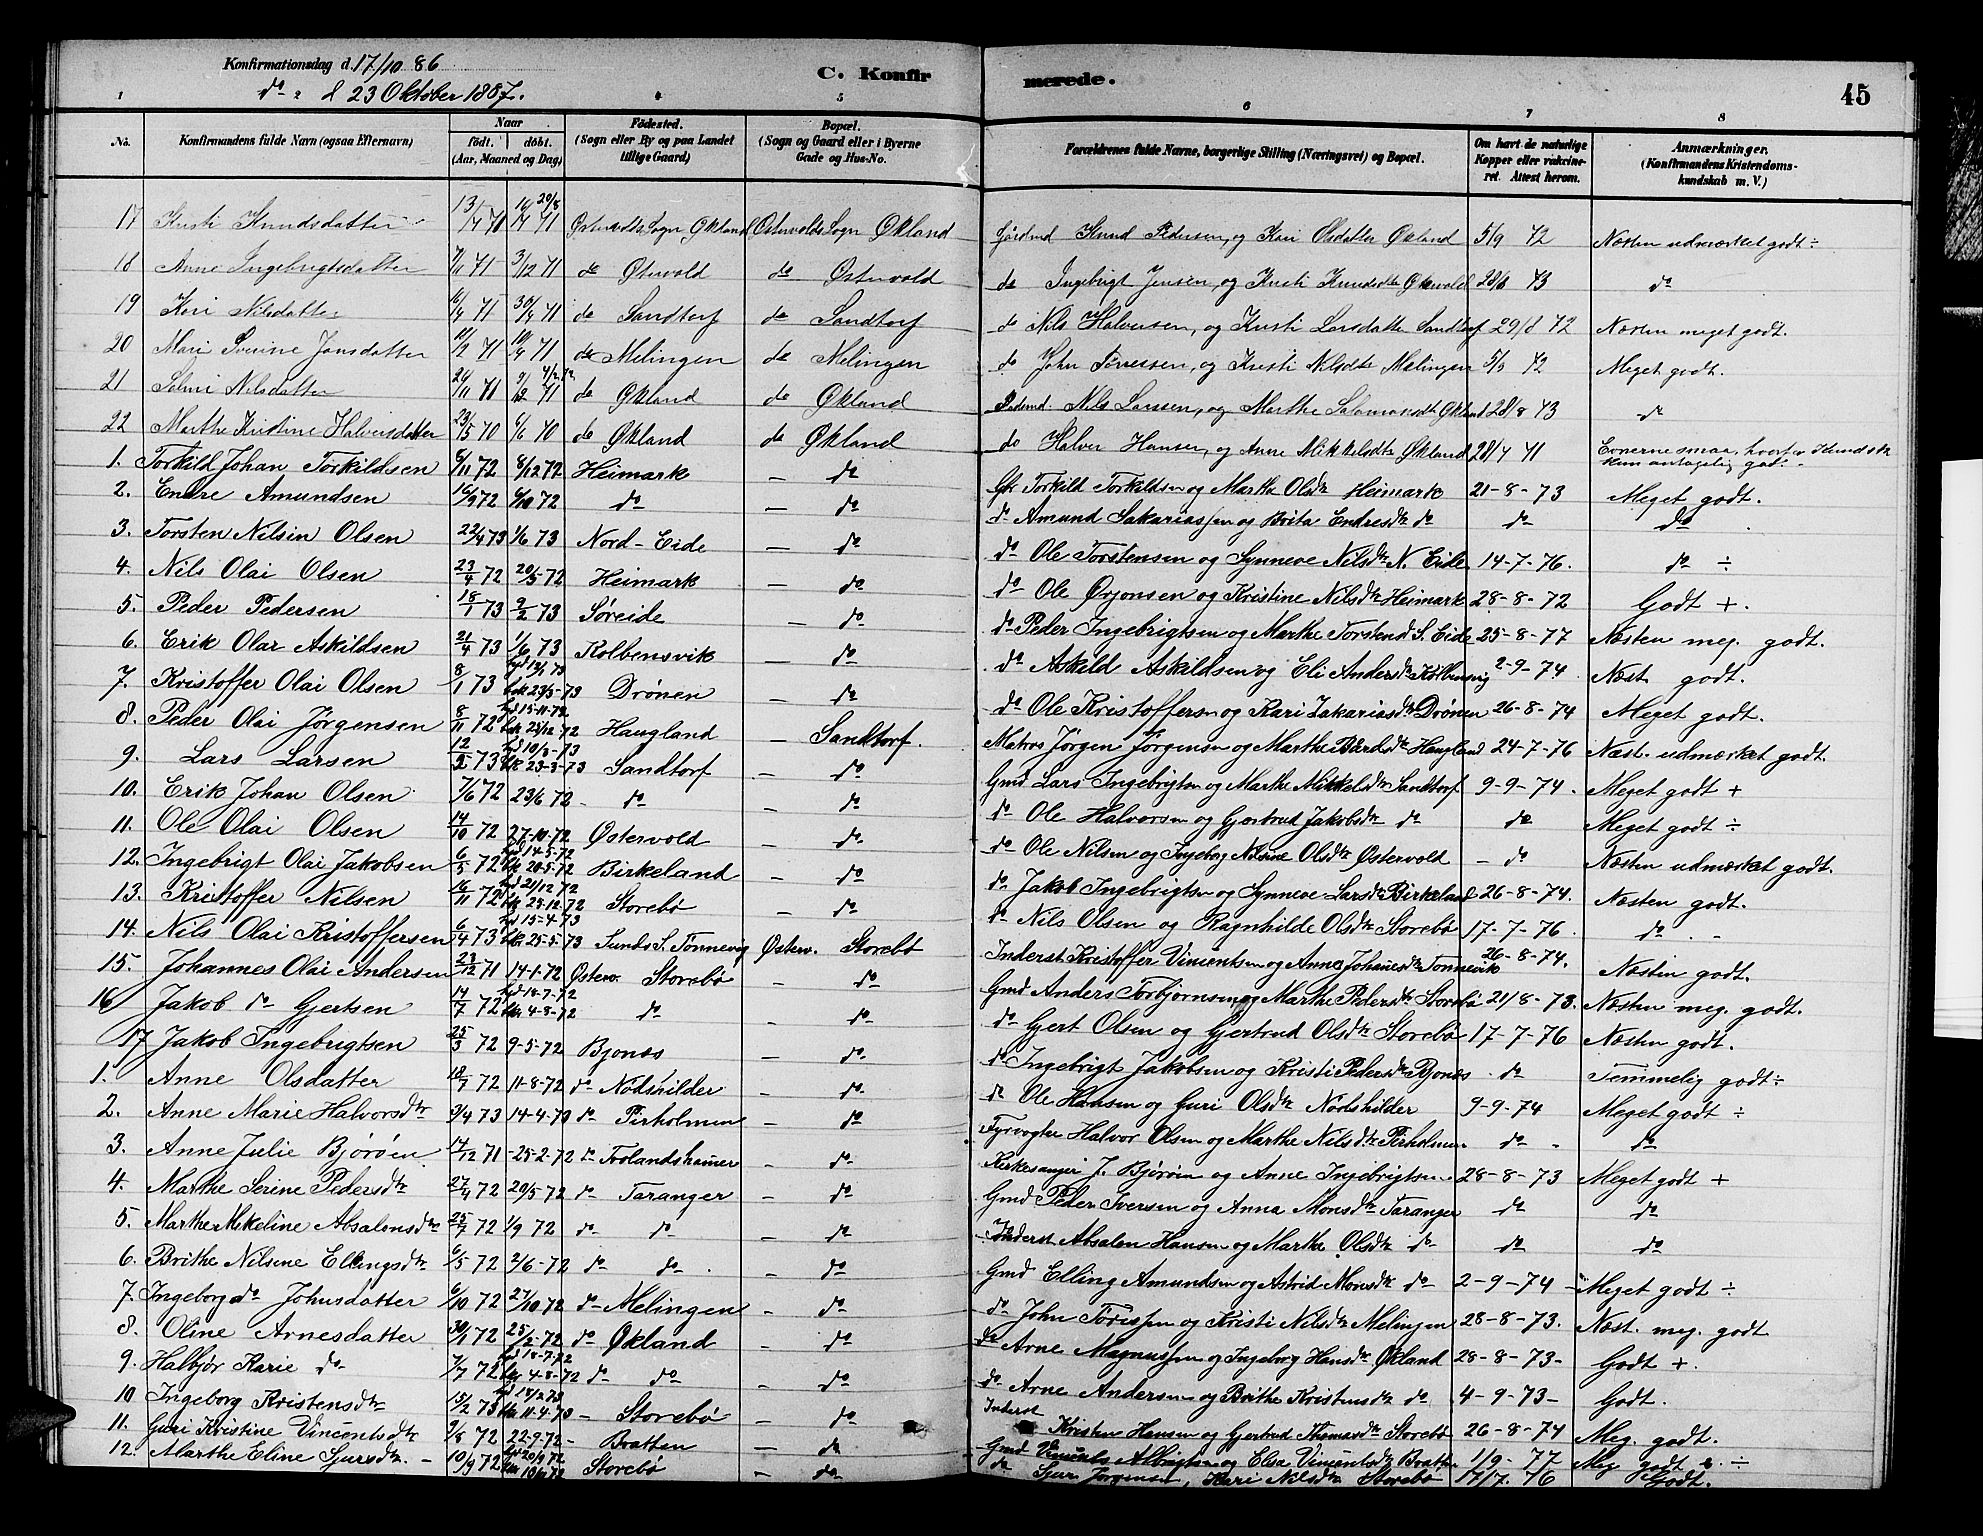 Konfirmationsdag d. 17/10 86
do " d 23 Oktober 1887.
C. Konfirmerede.
45
1 2 4 5 6 7 8
No. Konfirmandens fulde Navn (ogsaa Efternavn) Naar födt. döbt. (Aar, Maaned og Dag) Födested. (Sogn eller By og paa Landet tillige Gaard) Bopæl. (Sogn og Gaard eller i Byerne Gade og Hus-No. Forældrenes fulde Navne, borgerlige Stilling (Næringsvei) og Bopæl. Om havt de naturlige Kopper eller vakcineret. Attest herom. Anmærkninger. (Konfirmandens Kristendomskundskab m. V.)
17 Kristi Knudsdatter 71 Østervolds Sogn Økland Østervolds Sogn Økland Gårdmd Knud Pedersen, og Kari Olsdatter Økland 5/9 72 Næsten udmærket godt ÷
18 Anne Ingebrigtsdatter 7/11 71 3/12 71 do Østervold do Østervold do Ingebrigt Jensen, og Kristi Knudsdt Østervold 28/8 73 do
19 Kari Nilsdatter 16/4 71 30/4 71 do Sandtorf do Sandtorf do Nils Halvorsen, og Kristi Larsdatter Sandtorf 29/8 72 Næsten meget godt.
20 Mari Sverine Jonsdatter 71 71 do Melingen do Melingen do John Tørressen, og Kristi Nilsdt Melingen 5/9 72 Meget godt.
21 Selmi Nilsdatter 71 71 do Økland do Økland Nils Larssen, og Marthe Salamonsdt Økland 28/8 73 do
22 Marthe Kristine Halvorsdatter 23/5 70 6/6 70 do Økland do Økland do Halvor Hansen, og Anne Mikkelsdt Økland 28/4 71 Evnerne smaa, hvorfor Kundsk. kun antagelig god.
1. Torkild Johan Torkildsen 6/11 72 8/12 72 Heimark — do Gbr Torkild Torkildsen og Martha Olsdtr Heimark 21-8-73 Meget godt.
2. Endre Amundsen 16/9 72 6/10 72 do — do do Amund Sakariassen og Brita Endresdtr do do do
3. Torsten Nilsin Olsen 22/4 73 1/6 73 Nord-Eide — do do Ole Torstensen og Synneve Nilsdtr N. Eide 14-7-76. do ÷
4. Nils Olai Olsen 23/4 72 20/5 72 Heimark — do do Ole Ørjonsen og Kristine Nilsdtr Heimark 28-8-72 Godt +.
5. Peder Pedersen 18/1 73 9/2 73 Søreide — do do Peder Ingebrigtsen og Marthe Torstensd S. Eide 25-8-77 Næsten meg. godt.
6. Erik Olai Askildsen 21/4 73 1/6 73 Kolbensvik — do do Askild Askildsen og Eli Andersdtr Kolbensvig 2-9-74 Næst. godt.
7. Kristoffer Olai Olsen 8/1 73 hjd 12/1 73 bek 23/3-73 Drönen — do do Ole Kristoffersen og Kari Zakariasdtr Drönen 26-8-74 Meget godt.
8. Peder Olai Jørgensen 8/11 72 hjd 15-11-72 bek 25/12-72 Haugland — Sandtorf. Matros Jörgen Jørgensen og Marthe Bårdsdtr Haugland 24-7-76 Næst. udmærket godt.
9. Lars Larsen 12/2 73 hjd 10/3-73 bek 23-3-73 Sandtorf — do Gmd Lars Ingebrigtsen og Marthe Mikkelsdtr Sandtorf 9-9-74. Meget godt +
10. Erik Johan Olsen 7/6 72 23/6 72 - do — do do Ole Halvorsen og Gjertrud Jakobsdtr do do Meget godt ÷
11. Ole Olai Olsen 14/10 72 27-10-72 Østervold — do do Ole Nilsen og Ingeborg Nilsine Olsdtr Østervold - do Næsten udmærket godt.
12. Ingebrigt Olai Jakobsen 6/5 72 hjd 14-5-72 bek 20-5-72 Birkeland — do do Jakob Ingebrigtsen og Synneve Larsdtr Birkeland 26-8-74. Næsten godt.
13. Kristoffer Nilsen 16/11 72 hjd 21/12 72 bek 25-12-72 Storebø — do do Nils Olsen og Ragnhilde Olsdtr Storebø 17-7-76 do -
14. Nils Olai Kristoffersen 6/4 73 hjd 15-4-73 bek 25-5-73 Sunds S. Tönnevig Østerv. Storebø Inderst Kristoffer Vincentsen og Anne Johanesdtr Tonnevik 26-8-74. Næsten godt.
15. Johannes Olai Andersen 23/12 71 14-1-72 Østerv. Storebø — do Gmd Anders Torbjørnsen og Marthe Pedersdtr Storebø 21/8-73. Næsten meg. godt.
16 Jakob do Gjertsen 14/7 72 hjd 18-7-72 bek 4-8-72 do — do do Gjert Olsen og Gjertrud Olsdtr Storebø 17-7-76 Næsten godt.
17 Jakob Ingebrigtsen 25/3 72 9-5-72 Bjonæs — do do Ingebrigt Jakobsen og Kristi Pedersdtr Bjonæs - do Temmelig godt ÷
1. Anne Olsdatter 18/7 72 11-8-72 do Nodshilder — do do Ole Hansen og Guri Olsdtr Nodshilder 9-9-74 Meget godt ÷
2. Anne Marie Halvorsdtr 9/4 73 14-4-73 do Pirholmen — do Fyrvogter Halvor Olsen og Marthe Nilsdtr Pirholmen do - do
3. Anne Julie Bjørøen 14/12 71 25-2-72 do — do Kirkesanger J. Björöen og Anne Ingebrigtsen 28-8-73 Meget godt +
4. Marthe Serine Pedersdtr 27/4 72 20/5-72 do Taranger — do Gmd Peder Iversen og Anna Monsdtr Taranger do do
5. Marthe Mikeline Absalonsdtr 25/7 72 1/9 72 do do — do Inderst Absalon Hansen og Marthe Olsdtr do do do
6. Brithe Nilsine Ellingsdtr 6/5 72 2/6-72 do do — do Gmd Elling Amundsen og Astrid Monsdtr do 2-9-74 Meget godt ÷
7. Ingeborg do Johnsdatter 6/10 72 27/10 72 do Melingen — do do John Töressen og Kristi Nilsdtr Melingen 28-8-73. Næst. meg. godt
8. Oline Arnesdatter 30/1 72 25/2-72 do Økland — do do Arne Magnussen og Ingeborg Hansdtr Økland 28-8-73- Godt +.
9. Halbjør Karie do 7/7 72 hjd 18-7-72 bek 4-8-72 do do — do do Arne Andersen og Brithe Kristensdtr do 4-9-73- Godt.
10 Ingeborg Kristensdtr 15/2 73 hjd 18/2 73 bek 11-4-73 - Storebø — do Inderst Kristen Hansen og Gjertrud Thomasdtr Storebø 26-8-74 Meg. godt.
11. Guri Kristine Vincentsdtr 9/8 72 22-9-72 - Bratten — do Gmd Vincents Albrigtsen og Elsa Vincentsdtr Bratten 1/9-77 Meg godt ÷
12. Marthe Eline Sjursdtr. - 10/9 72 hjd 20/9 72 Storebø — do do Sjur Jørgensen, Kari Nilsdtr Storebø 17/7. 76 Godt.